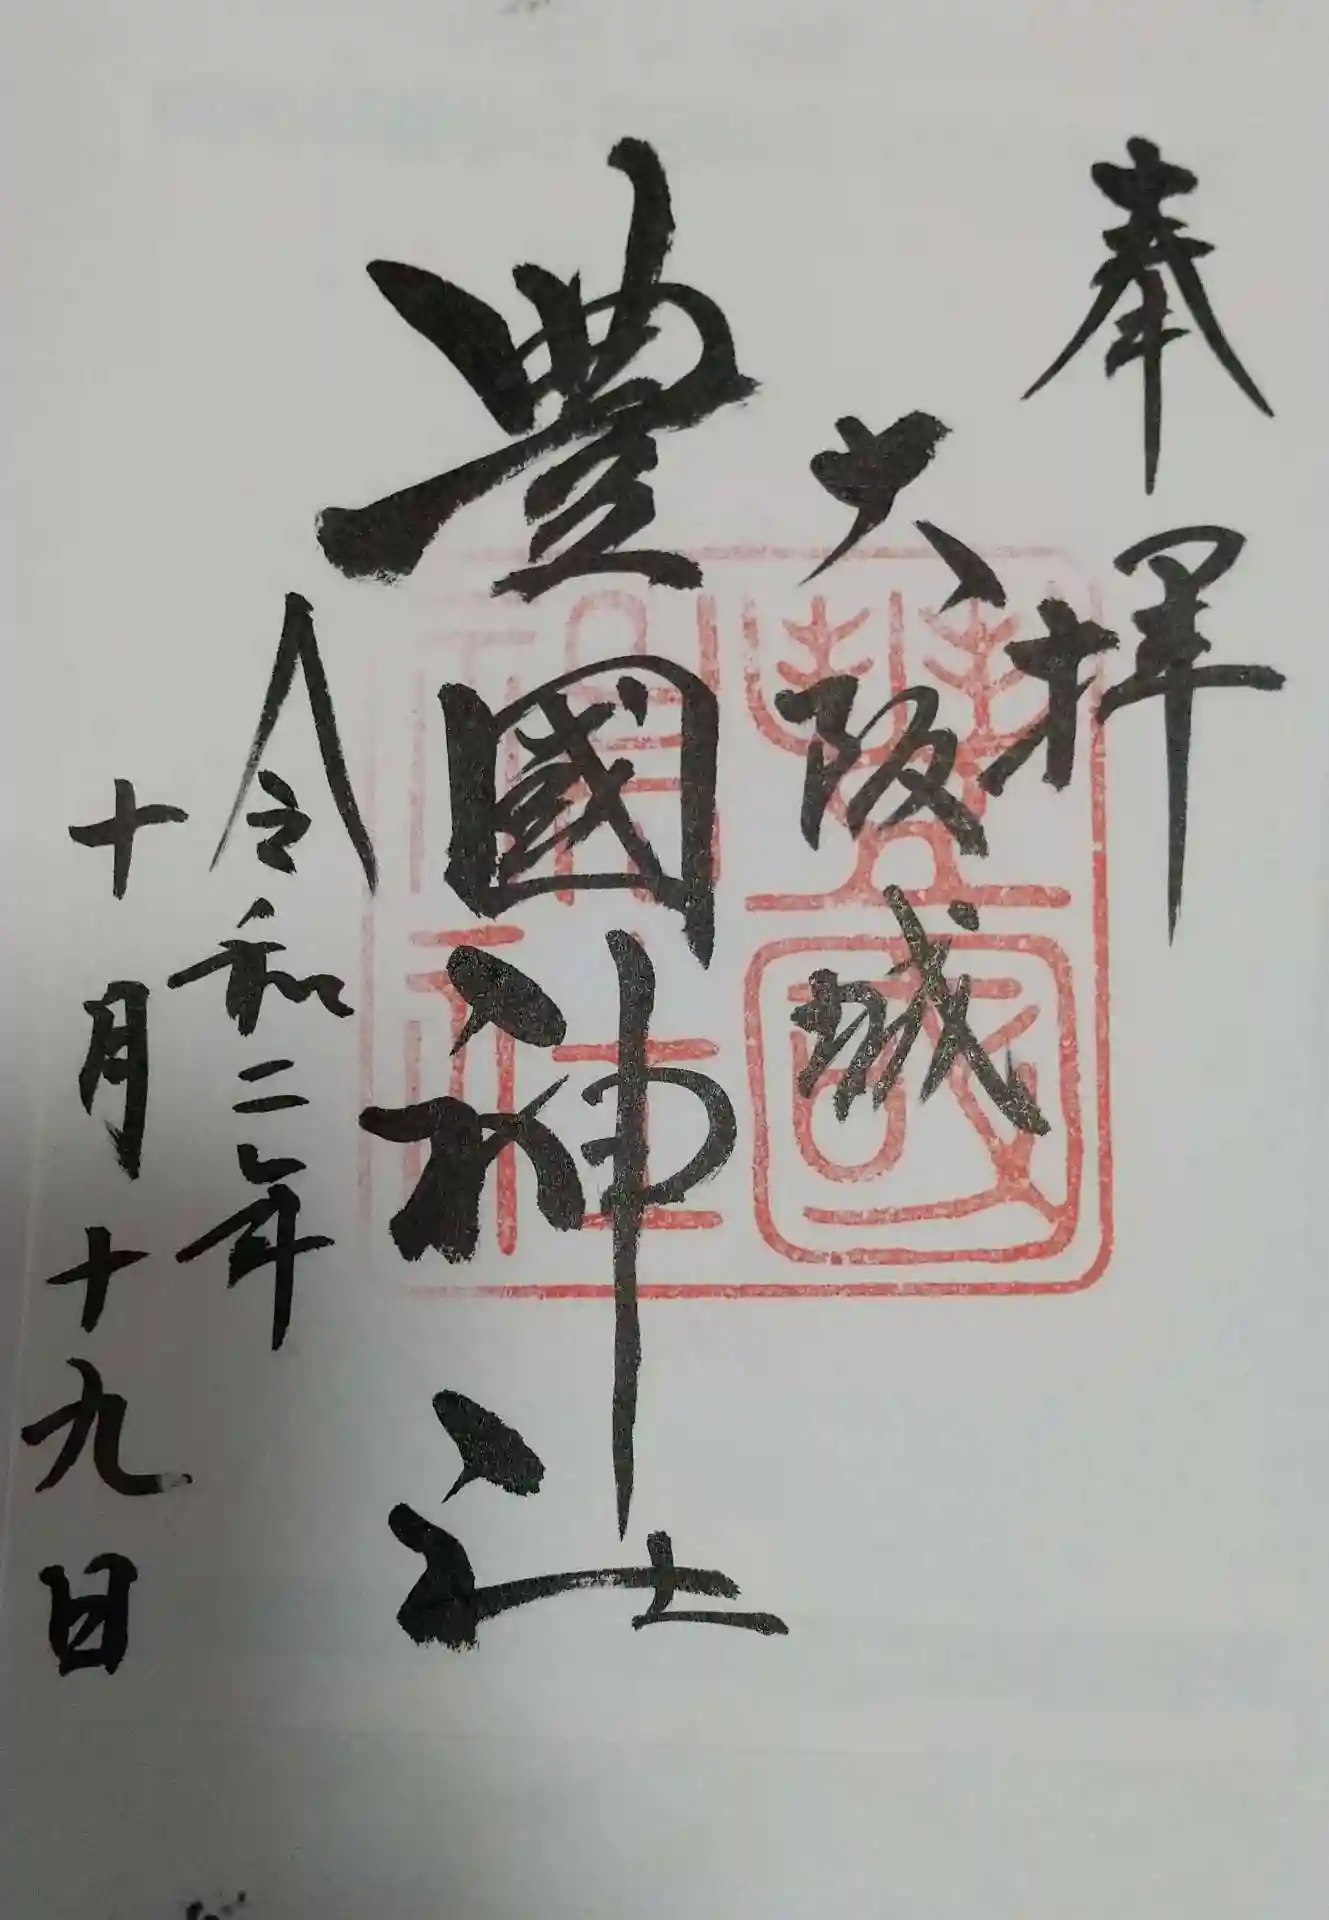 奉拝
大阪城
豊國神社
令和二年
十月十九日
豐國
神社